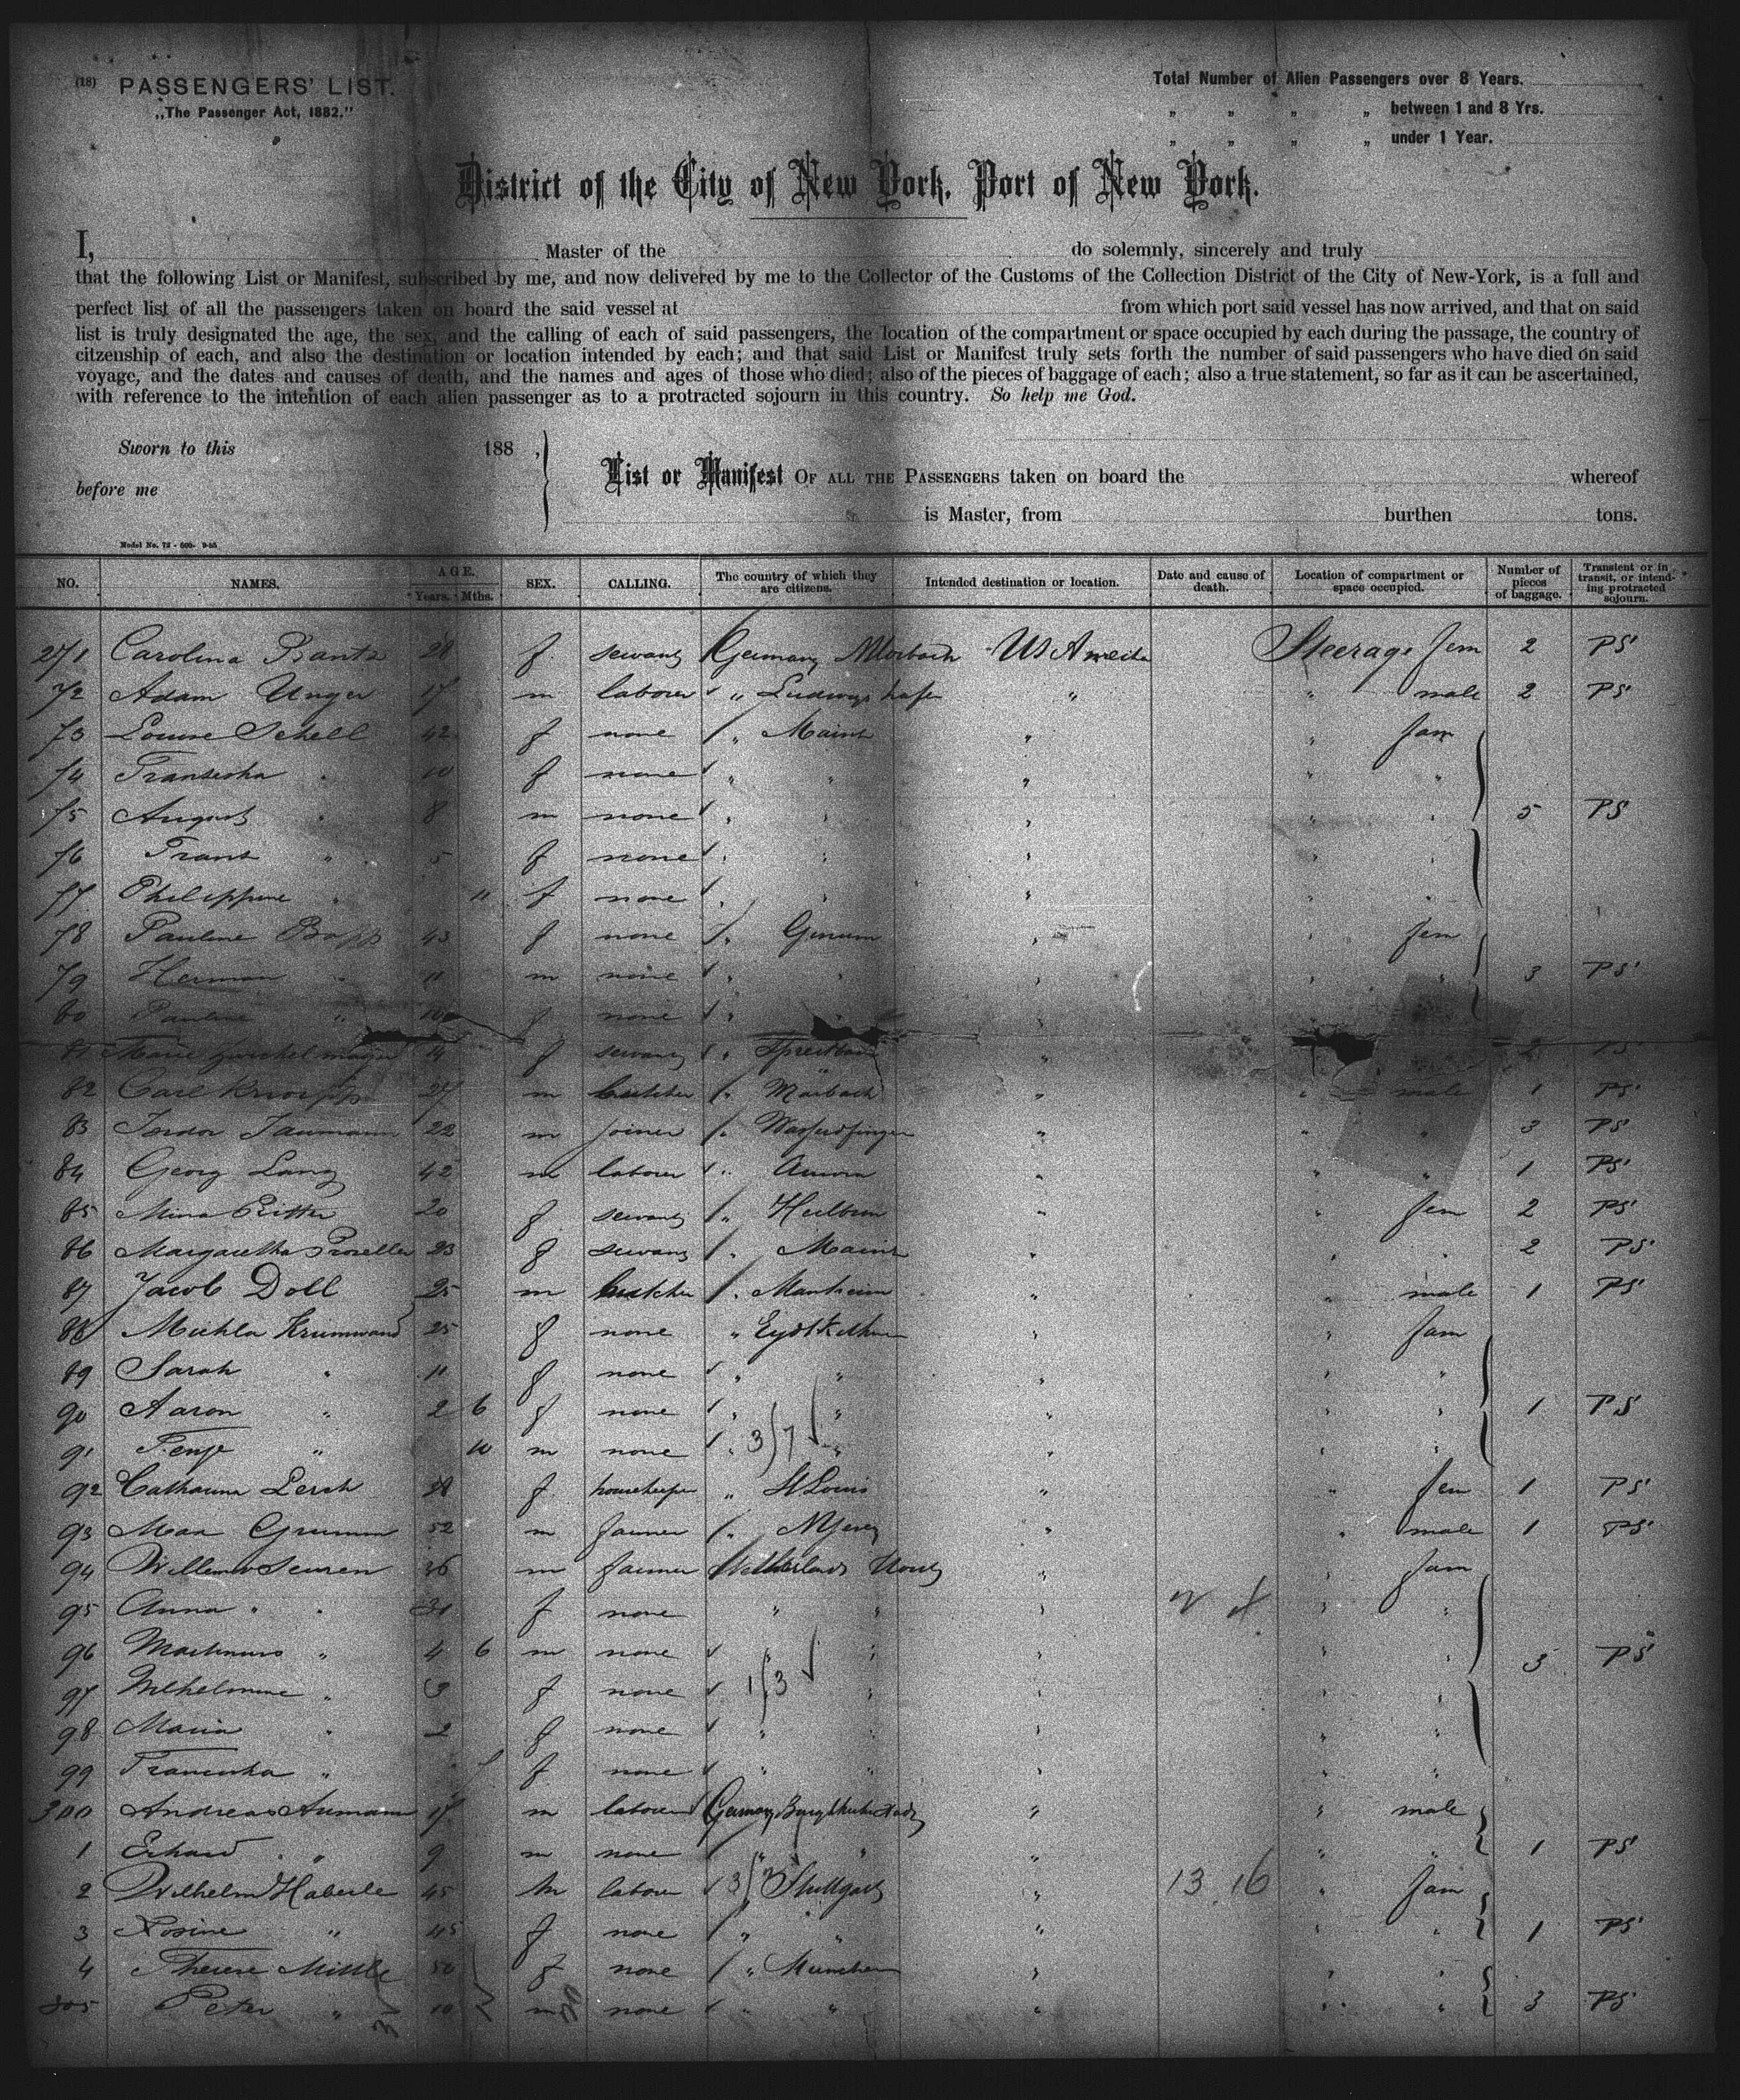 (18) PASSENGERS' LIST.
„The Passenger Act, 1882."
Total Number of Alien Passengers over 8 Years.
„ „ „ „ between 1 and 8 Yrs.
„ „ „ „ under 1 Year.
District of the City of New York, Port of New York.
I, Master of the do solemnly, sincerely and truly
that the following List or Manifest, subscribed by me, and now delivered by me to the Collector of the Customs of the Collection District of the City of New-York, is a full and
perfect list of all the passengers taken on board the said vessel at from which port said vessel has now arrived, and that on said
list is truly designated the age, the sex, and the calling of each of said passengers, the location of the compartment or space occupied by each during the passage, the country of
citzenship of each, and also the destination or location intended by each; and that said List or Manifest truly sets forth the number of said passengers who have died on said
voyage, and the dates and causes of death, and the names and ages of those who died; also of the pieces of baggage of each; also a true statement, so far as it can be ascertained,
with reference to the intention of each alien passenger as to a protracted sojourn in this country. So help me God.
Sworn to this 188 ,
before me
List or Manifest OF ALL THE PASSENGERS taken on board the whereof
is Master, from burthen tons.
Model No. 72 - 500- 9-85
NO. NAMES. AGE. Years. Mths. SEX. CALLING. The country of which they are citizens. Intended destination or location. Date and cause of death. Location of compartment or space occupied. Number of pieces of baggage. Transient or in transit, or intending protracted sojourn.
271 Carolina f servant Germany US America Steerage fem 2 PS
72 Adam Unger 17 m laborer " Ludwigshafen " " male 2 PS
73 Louise Schell 42 f none " Mainz " " fam
74 Franziska " 10 f none " " " " "
75 August " 8 m none " " " " " 5 PS
76 Franz " 5 f none " " " " "
77 Philippine " 11 f none " " " " "
78 Pauline Bopp 43 f none " " " fem
79 Herman " 11 m none " " " " " 3 PS
80 Pauline " f none " " "
81 Marie 14 f servant " " 2 PS
82 Carl Knorpp 27 m butcher " Marbach " " male 1 PS
83 22 m joiner " " " " 3 PS
84 Georg Lang 42 m laborer " " " " 1 PS
85 Mina Ritter 20 f servant " Heilbron " " fem 2 PS
86 Margaretha 23 f servant " Mainz " " " 2 PS
87 Jacob Doll 25 m butcher " Manheim " " male 1 PS
88 Michla Krumwand 25 f none " " " fam
89 Sarah " 11 f none " " " " "
90 Aaron " 2 6 f none " " " " " 1 PS
91 " 10 m none " 3/7 " " " "
92 Catharina Lerch f housekeeper " St Louis " " fem 1 PS
93 Max Grumm 52 m farmer " " " male 1 PS
94 36 m farmer Netherlands " " fam
95 Anna " " 31 f none " " " " "
96 Martinus " 4 6 m none " " " " " 3 PS
97 Wilhelmine " 3 f none 1/3 " " " "
98 Maria " 2 f none " " " " "
99 Franziska " f none " " " " "
300 Andreas Aumann 17 m laborer Germany " " male
1 Erhard " 9 m none " " " " " 1 PS
2 Wilhelm Haberle 45 m laborer 3 " Stuttgart " 13 16 " fam
3 Rosine " 45 f none " " " " " 1 PS
4 Therese 50 f none " Munchen " " "
305 Peter " 10 m none " " " " " 3 PS